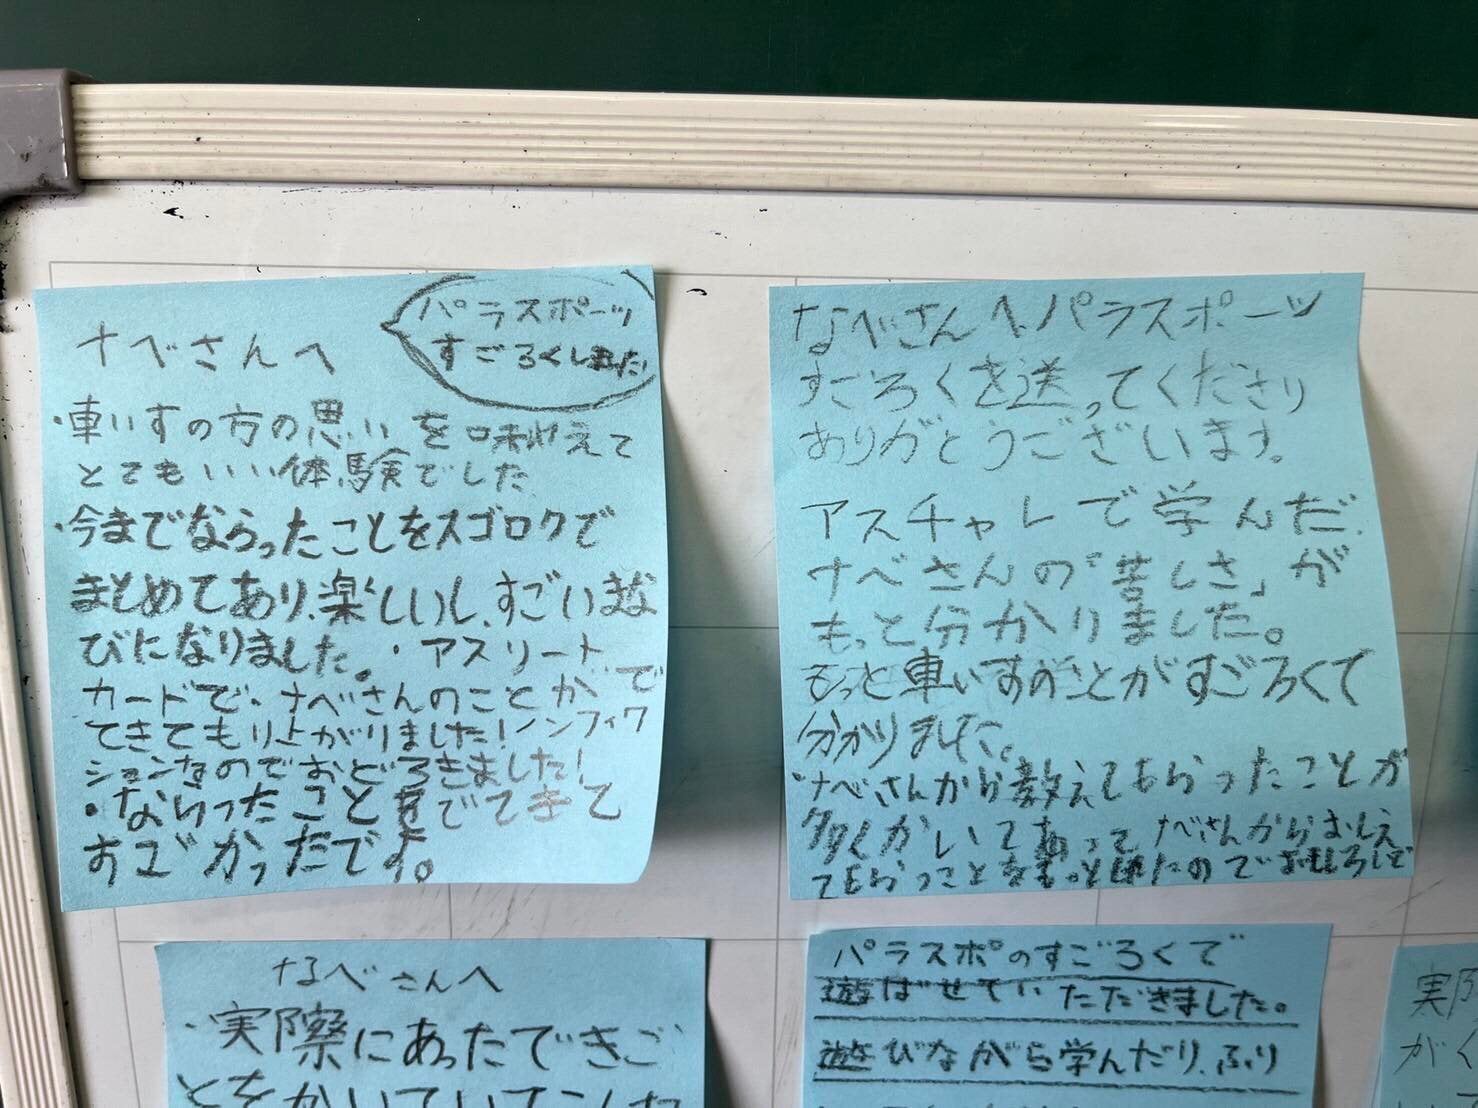 ナベさんへ
パラスポーツ
すごろくしました
・車いすの方の思いを味わえて
とてもいい体験でした
・今までならったことをスゴロクで
まとめてあり、楽しいし、すごいまな
びになりました。・アスリート
カードで、ナベさんのことがで
てきてもり上がりました!ノンフィク
ションなのでおどろきました!
・ならったことまででてきて
すごかったです。
なべさんへ パラスポーツ
すごろくを送ってくださり
ありがとうございます。
アスチャレで学んだ、
ナベさんの「苦しさ」が
もっと分かりました。
もっと車いすのことがすごろくで
分かりました。
・ナベさんから教えてもらったことが
多くかいてあって ナベさんからおしえ
てもらったことをもっと
なべさんへ
・実際にあったできご
とをかいていてこした
パラスポのすごろくで
遊ばせていただきました。
遊びながら学んだり、ふり
実際
がく